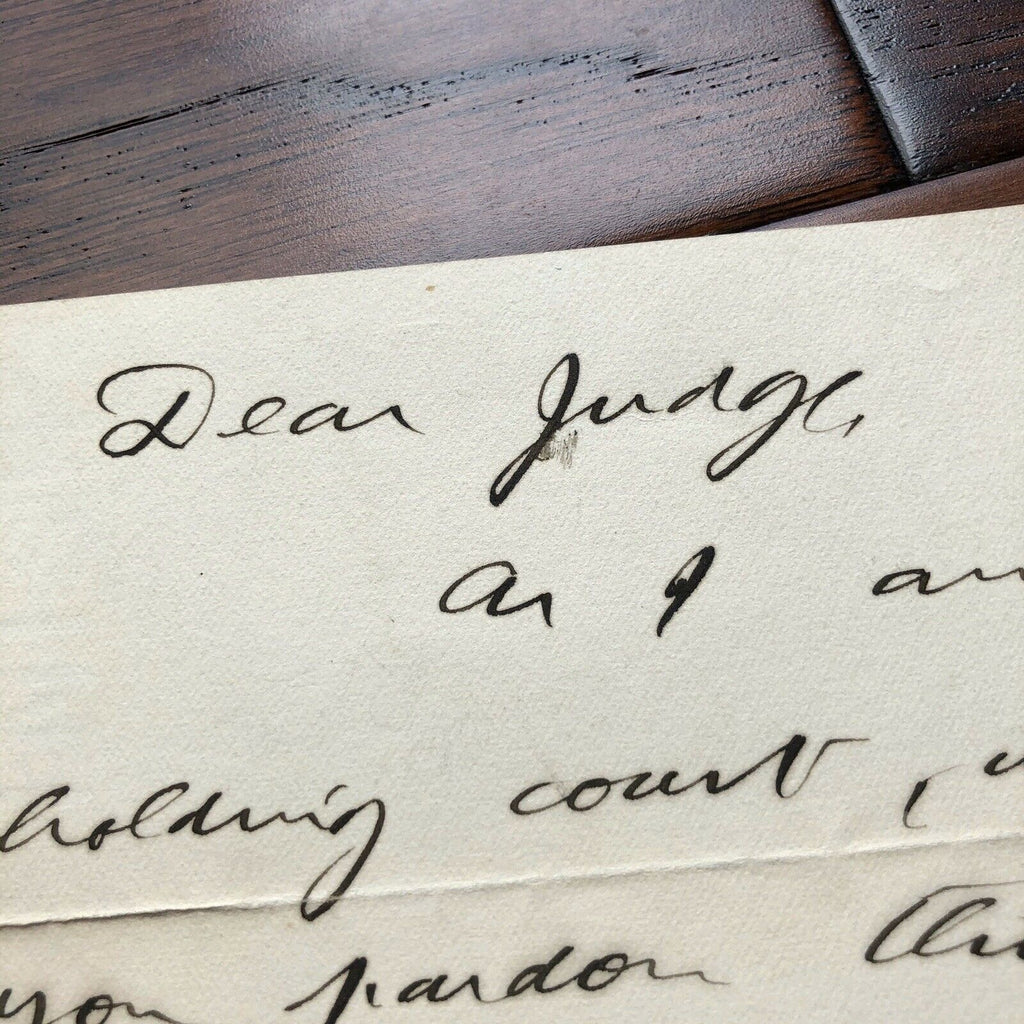 Dear Judge,
As I am
holding court,
you pardon